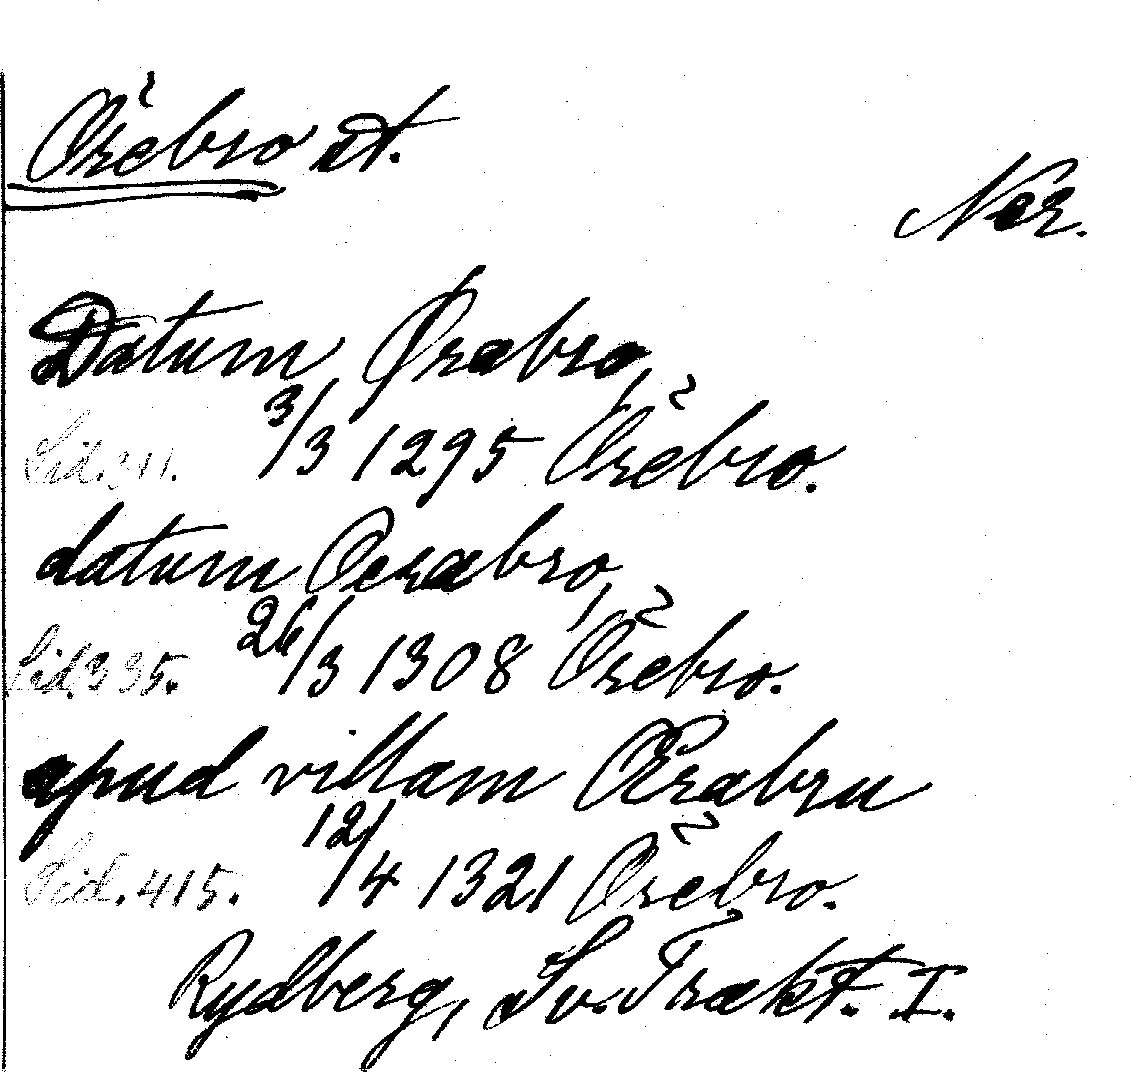 Örebro st.
När.
Datum Ørabro,
Sid. 311. 3/3 1295 Örebro.
datum Oerabro,
Sid. 335. 26/3 1308 Örebro.
apud villam Œrabru
Sid. 415. 12/4 1321 Örebro.
Rydberg, Sv. Trakt. I.